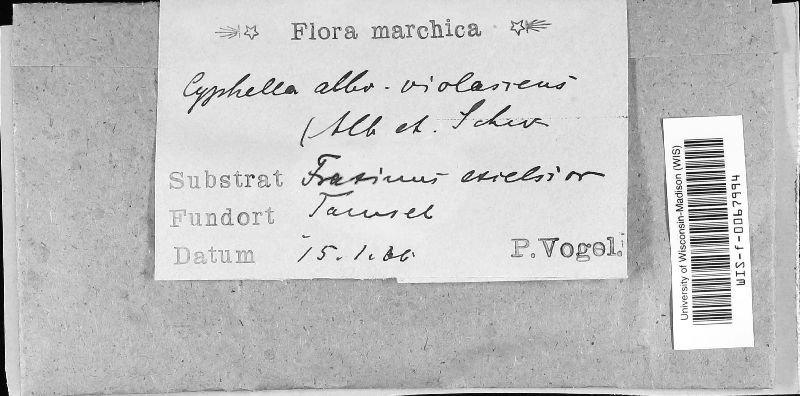 Flora marchica
Cyphella albo-violascens
(Alb et. Schw
Substrat Fraxinus excelsior
Fundort Tamsel
Datum 15.1.06
P. Vogel.
University of Wisconsin-Madison (WIS)
WIS-f-0067994